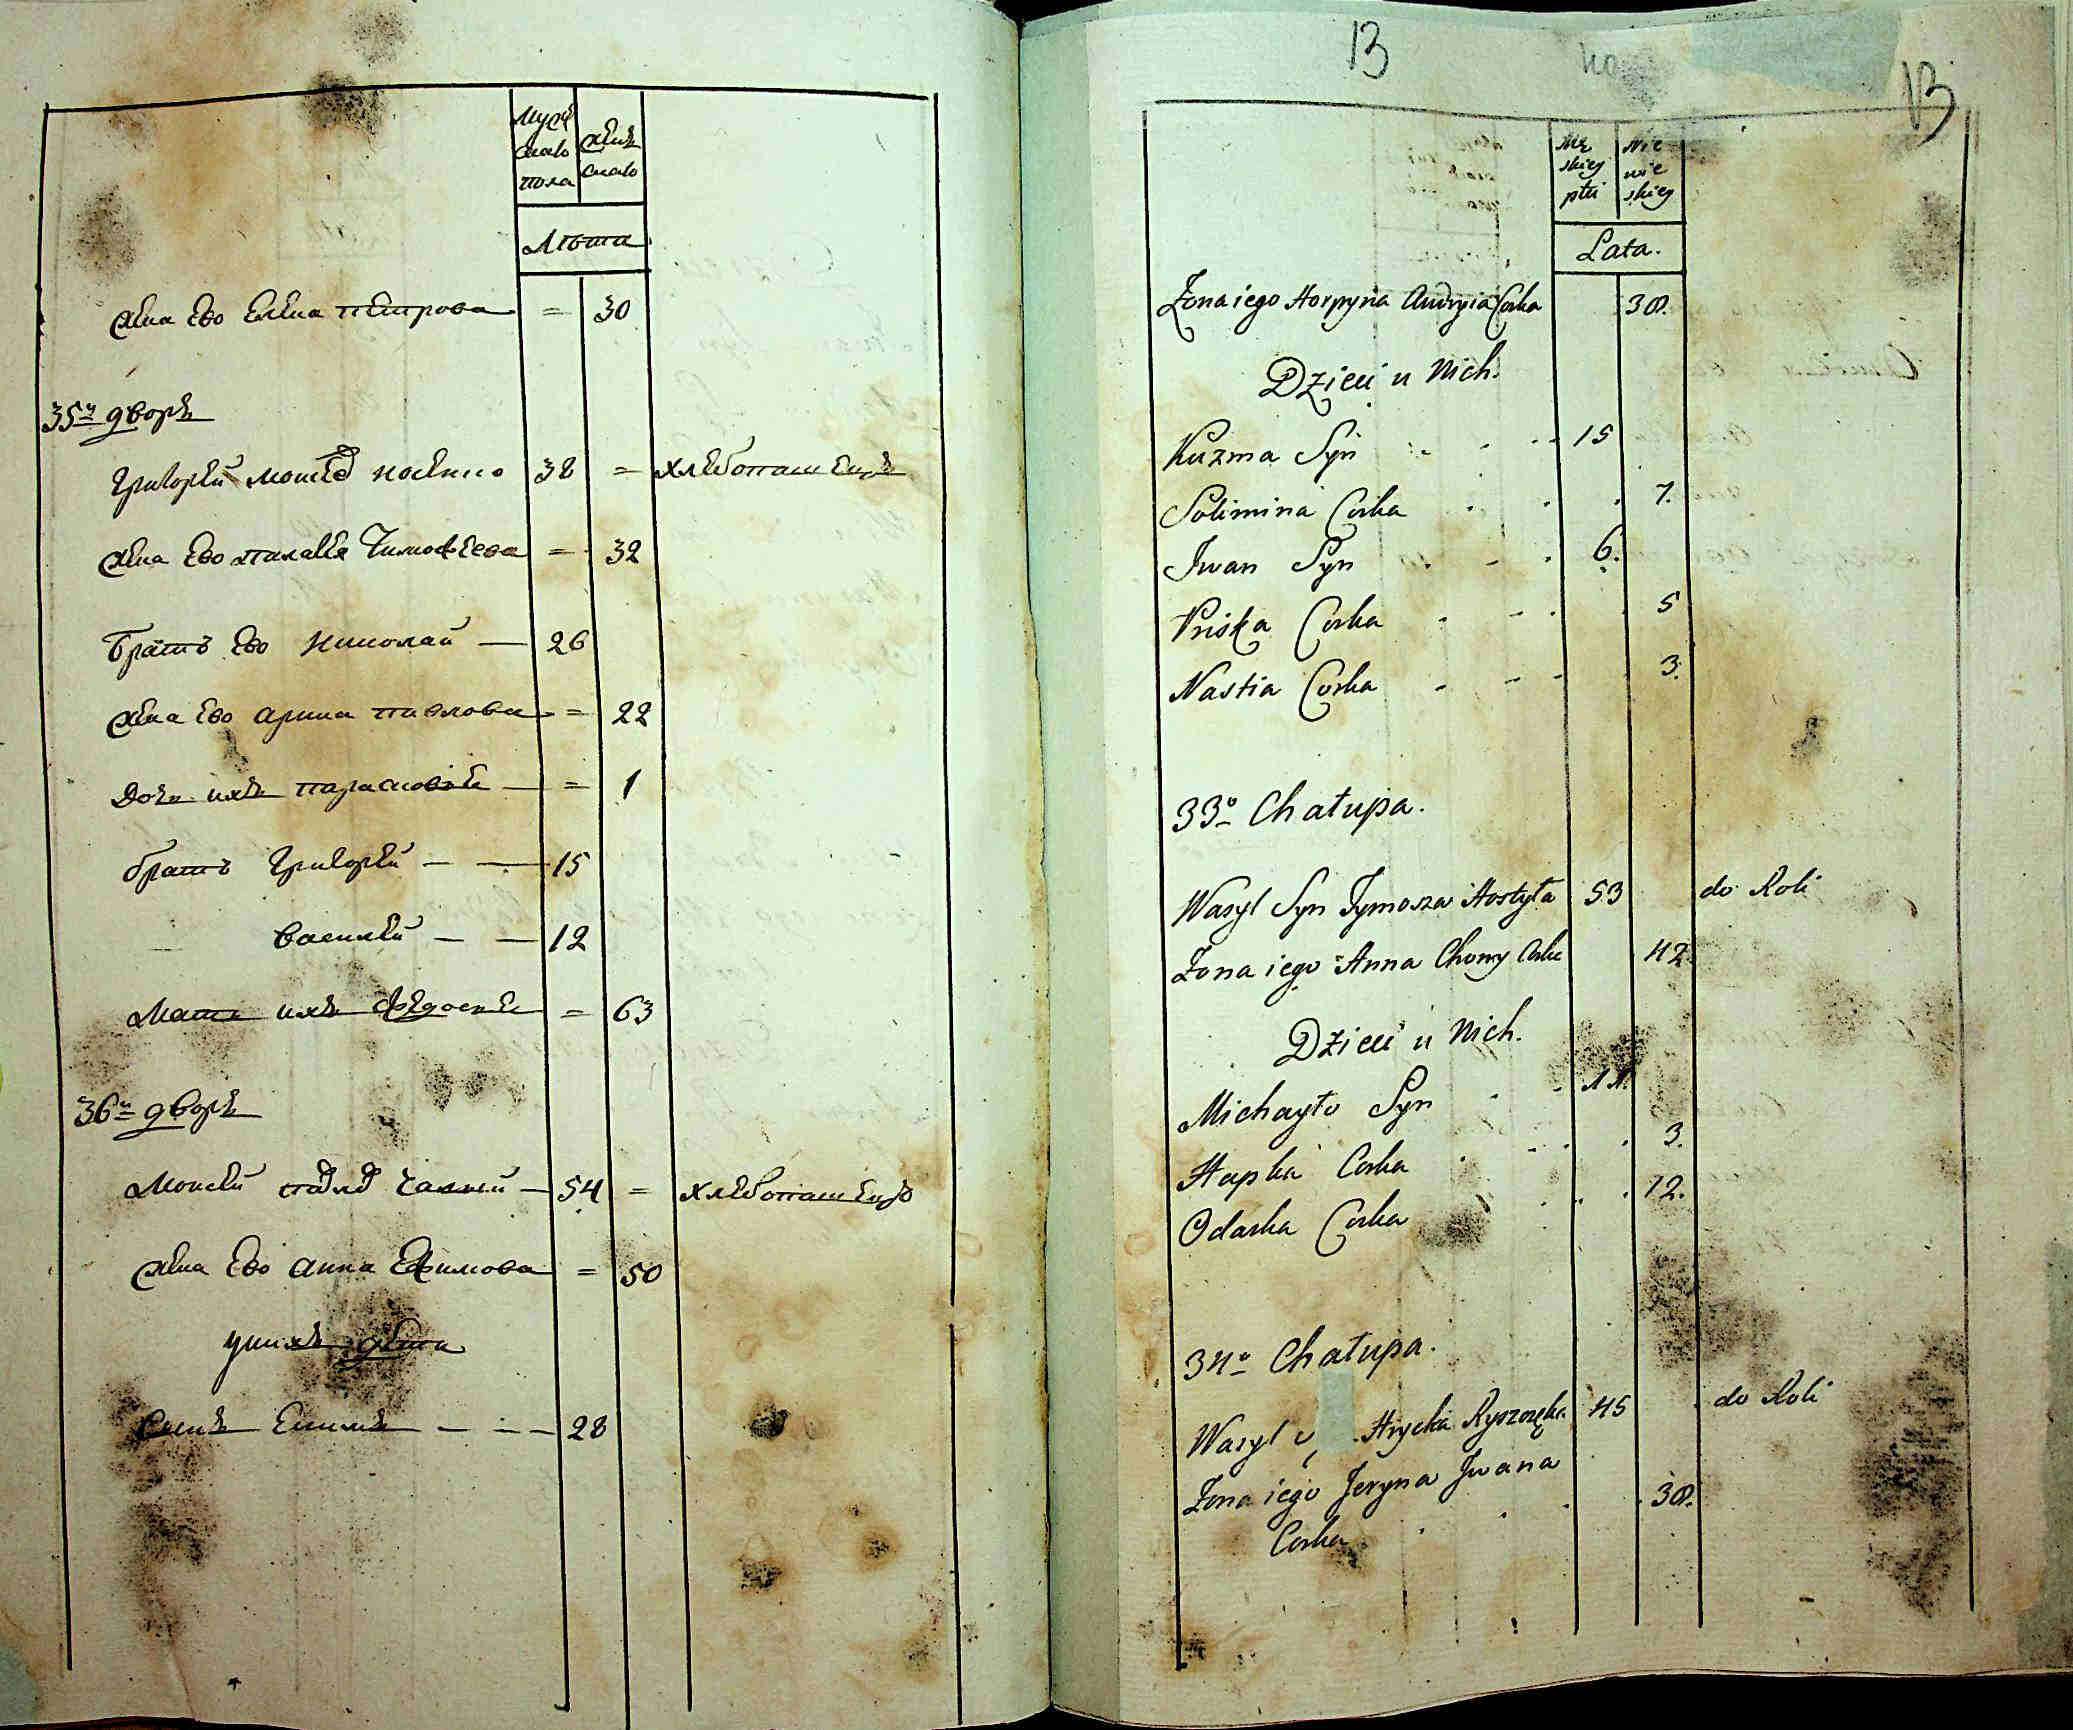 Мужескаво пола
женскаво
Лѣта
жена ево елена петрова = 30
35й дворъ
Григорей 38 = хлебопашецъ
жена ево пелагея Тимофеева = 32
братъ ево николай — 26
жена ево арина павлова = 22
дочь ихъ парасковея — = 1
братъ григорей — — 15
василей — — 12
мать ихъ федосия = 63
36й дворъ
Моисей 54 = хлебопашецъ
жена ево анна Ефимова = 50
у нихъ дети
Сынъ Емилян — — — 28
13
13
Męskieg płci
Niewieskieg
Lata.
Zona iego Horpyna Andryia Corka 38.
Dzieci u Nich.
Kuzma Syn 15
Solimina Corka 7.
Jwan Syn 6.
Priska Corka 5
Nastia Corka 3.
33o Chałupa.
Wasyl Syn Tymosza Hostyła 53 do Roli
Zona iego Anna Chomy Corka 42.
Dzieci u Nich.
Michayło Syn 11.
Hapka Corka 3.
Odarka Corka 12.
34o Chałupa.
Wasyl Hrycka 45 do Roli
Zona iego Jeryna Jwana 38.
Corka